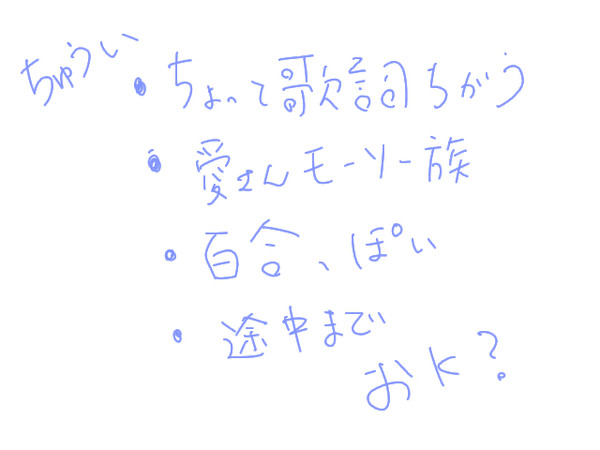 ちゅうい
・ちょって歌詞ちがう
・愛さんモーソー族
・百合、ぽい
・途中まで
おK?